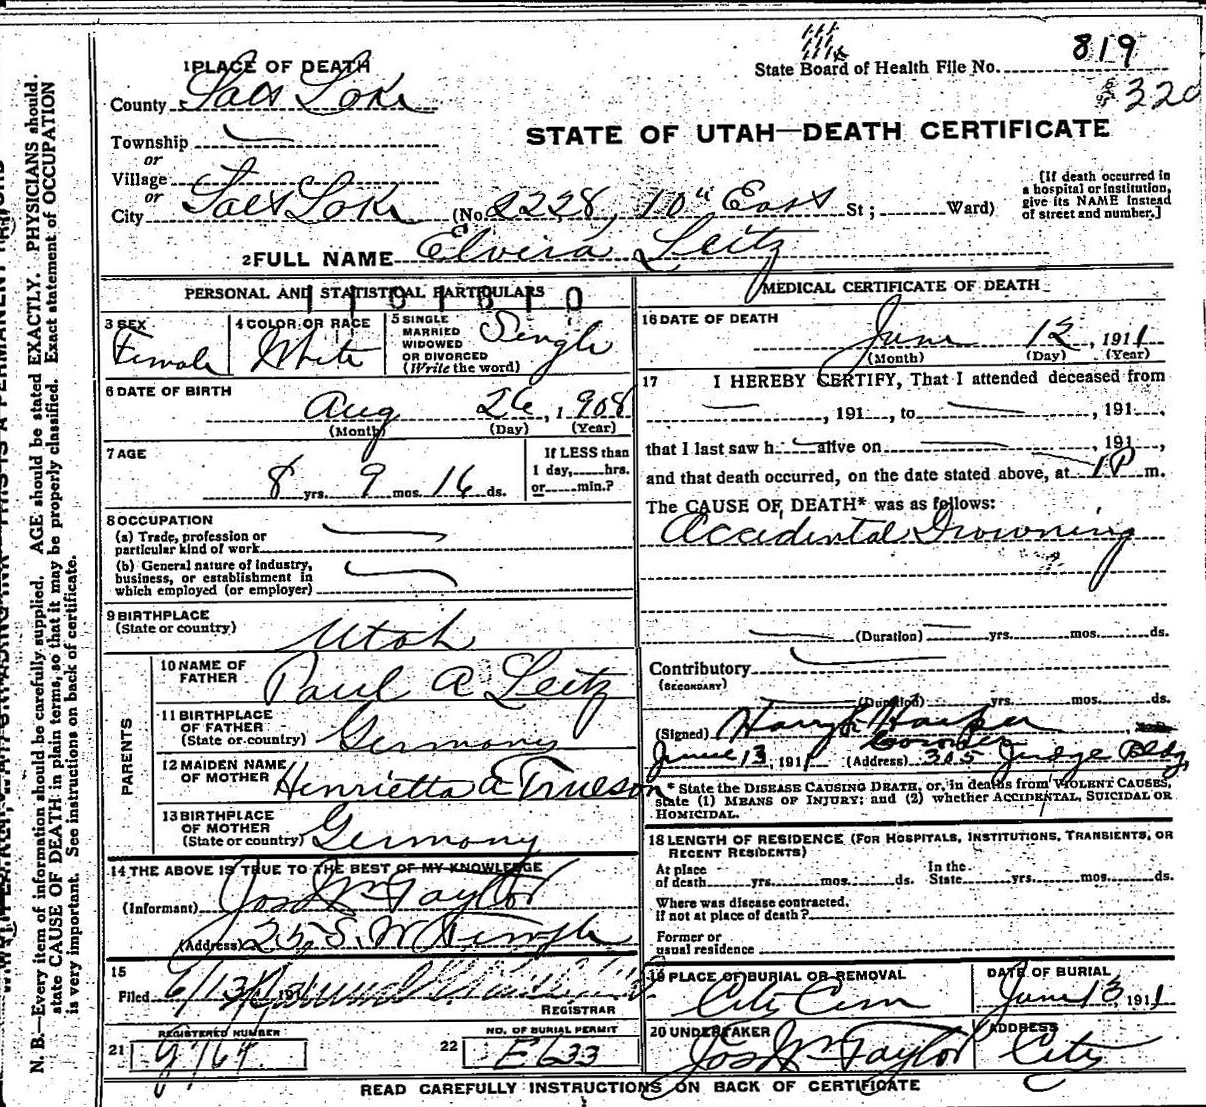 State Board of Health File No. 819
320
1 PLACE OF DEATH
County Salt Lake
STATE OF UTAH—DEATH CERTIFICATE
Township
or
Village
or
City Salt Lake (No. 2228, 10" East St; Ward)
[If death occurred in a hospital or institution, give its NAME instead of street and number.]
2 FULL NAME Elvira Leitz
PERSONAL AND STATISTICAL PARTICULARS
3 SEX Female
4 COLOR OR RACE White
5 SINGLE MARRIED WIDOWED OR DIVORCED (Write the word) Single
6 DATE OF BIRTH
Aug 26, 1908
(Month) (Day) (Year)
7 AGE
8 yrs. 9 mos. 16 ds.
If LESS than 1 day, hrs. or min.?
8 OCCUPATION
(a) Trade, profession or particular kind of work
(b) General nature of industry, business, or establishment in which employed (or employer)
9 BIRTHPLACE (State or country) Utah
PARENTS
10 NAME OF FATHER Paul A Leitz
11 BIRTHPLACE OF FATHER (State or country) Germany
12 MAIDEN NAME OF MOTHER Henrietta A Trueson
13 BIRTHPLACE OF MOTHER (State or country) Germany
14 THE ABOVE IS TRUE TO THE BEST OF MY KNOWLEDGE
(Informant) Jos Wm Taylor
(Address) 25 S. W Temple
15
Filed 6/13 191
REGISTRAR
REGISTERED NUMBER
21
NO. OF BURIAL PERMIT
22 E633
MEDICAL CERTIFICATE OF DEATH
16 DATE OF DEATH
June 12, 1911
(Month) (Day) (Year)
17 I HEREBY CERTIFY, That I attended deceased from
, 191 , to , 191 ,
that I last saw h alive on , 191 ,
and that death occurred, on the date stated above, at 1P m.
The CAUSE OF DEATH* was as follows:
Accidental Drowning
(Duration) yrs. mos. ds.
Contributory
(SECONDARY)
(Duration) yrs. mos. ds.
(Signed) Harry Harper
Coroner
June 13, 1911 (Address) 305 Judge Bldg
* State the DISEASE CAUSING DEATH, or, in deaths from VIOLENT CAUSES, state (1) MEANS OF INJURY; and (2) whether ACCIDENTAL, SUICIDAL OR HOMICIDAL.
18 LENGTH OF RESIDENCE (FOR HOSPITALS, INSTITUTIONS, TRANSIENTS, OR RECENT RESIDENTS)
At place of death yrs. mos. ds. In the State yrs. mos. ds.
Where was disease contracted, if not at place of death?
Former or usual residence
19 PLACE OF BURIAL OR REMOVAL City Cem
DATE OF BURIAL June 13, 1911
20 UNDERTAKER Jos Wm Taylor
ADDRESS City
READ CAREFULLY INSTRUCTIONS ON BACK OF CERTIFICATE
N. B.—Every item of information should be carefully supplied. AGE should be stated EXACTLY. PHYSICIANS should
state CAUSE OF DEATH in plain terms, so that it may be properly classified. Exact statement of OCCUPATION
is very important. See instructions on back of certificate.